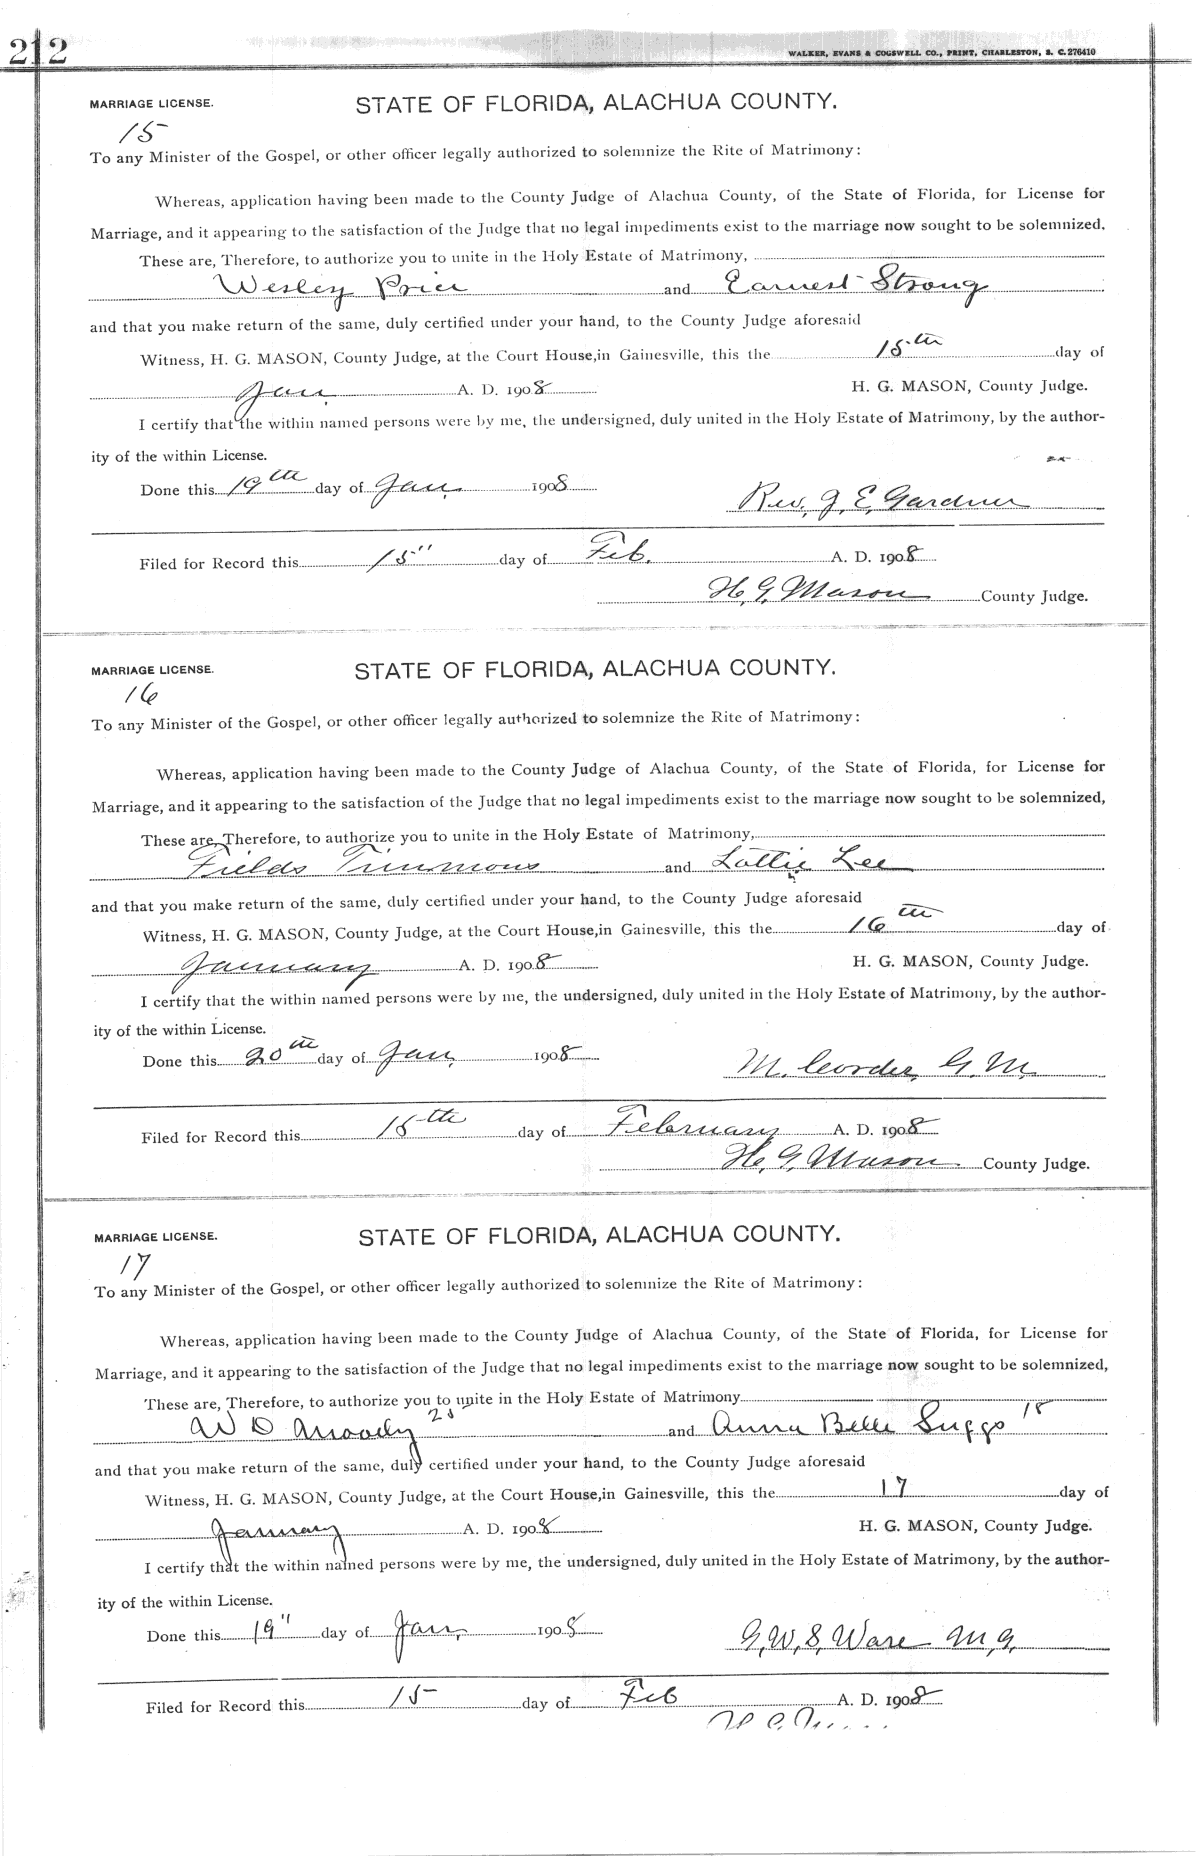 212
WALKER, EVANS & COGSWELL CO., PRINT, CHARLESTON, S. C. 276410
MARRIAGE LICENSE.
STATE OF FLORIDA, ALACHUA COUNTY.
15
To any Minister of the Gospel, or other officer legally authorized to solemnize the Rite of Matrimony:
Whereas, application having been made to the County Judge of Alachua County, of the State of Florida, for License for
Marriage, and it appearing to the satisfaction of the Judge that no legal impediments exist to the marriage now sought to be solemnized,
These are, Therefore, to authorize you to unite in the Holy Estate of Matrimony,
Wesley Price and Earnest Strong
and that you make return of the same, duly certified under your hand, to the County Judge aforesaid
Witness, H. G. MASON, County Judge, at the Court House, in Gainesville, this the 15th day of
Jan. A. D. 1908 H. G. MASON, County Judge.
I certify that the within named persons were by me, the undersigned, duly united in the Holy Estate of Matrimony, by the author-
ity of the within License.
Done this 19th day of Jan. 1908
Rev. J. E. Gardner
Filed for Record this 15" day of Feb. A. D. 1908
H. G. Mason County Judge.
MARRIAGE LICENSE.
STATE OF FLORIDA, ALACHUA COUNTY.
16
To any Minister of the Gospel, or other officer legally authorized to solemnize the Rite of Matrimony:
Whereas, application having been made to the County Judge of Alachua County, of the State of Florida, for License for
Marriage, and it appearing to the satisfaction of the Judge that no legal impediments exist to the marriage now sought to be solemnized,
These are, Therefore, to authorize you to unite in the Holy Estate of Matrimony,
Fields Timmons and Lottie Lee
and that you make return of the same, duly certified under your hand, to the County Judge aforesaid
Witness, H. G. MASON, County Judge, at the Court House, in Gainesville, this the 16th day of
January A. D. 1908 H. G. MASON, County Judge.
I certify that the within named persons were by me, the undersigned, duly united in the Holy Estate of Matrimony, by the author-
ity of the within License.
Done this 20th day of Jan. 1908
M. G. M.
Filed for Record this 15th day of February A. D. 1908
H. G. Mason County Judge.
MARRIAGE LICENSE.
STATE OF FLORIDA, ALACHUA COUNTY.
17
To any Minister of the Gospel, or other officer legally authorized to solemnize the Rite of Matrimony:
Whereas, application having been made to the County Judge of Alachua County, of the State of Florida, for License for
Marriage, and it appearing to the satisfaction of the Judge that no legal impediments exist to the marriage now sought to be solemnized,
These are, Therefore, to authorize you to unite in the Holy Estate of Matrimony
W D Moody and Anna Belle Suggs 18
and that you make return of the same, duly certified under your hand, to the County Judge aforesaid
Witness, H. G. MASON, County Judge, at the Court House, in Gainesville, this the 17 day of
January A. D. 1908 H. G. MASON, County Judge.
I certify that the within named persons were by me, the undersigned, duly united in the Holy Estate of Matrimony, by the author-
ity of the within License.
Done this 19" day of Jan. 1908
G. W. S. Ware M. G.
Filed for Record this 15 day of Feb A. D. 1908